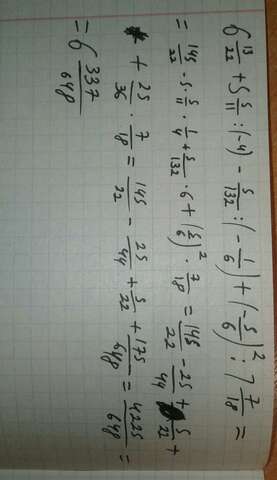 6 13/22 + 5 5/11 : (-4) - 5/132 : (-1/6) + (-5/6)² : 1 7/18 =
= 145/22 - 5 · 5/11 · 1/4 + 5/132 · 6 + (5/6)² · 7/18 = 145/22 - 25/44 + 5/22 +
+ 25/36 · 7/18 = 145/22 - 25/44 + 5/22 + 175/648 = 4225/648 =
= 6 337/648